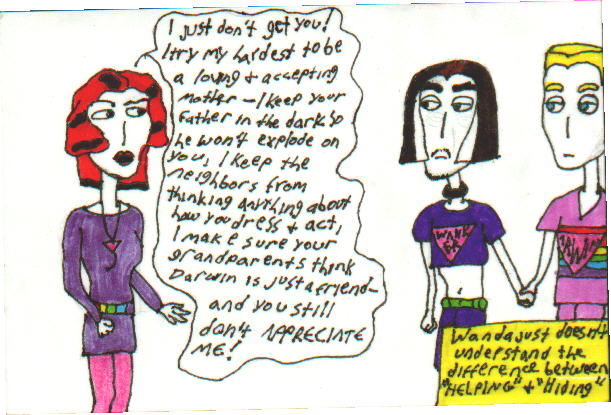 I just don't get you!
I try my hardest to be
a loving + accepting
mother - I keep your
father in the dark so
he won't explode on
you, I keep the
neighbors from
thinking anything about
how you dress + act,
I make sure your
grandparents think
Darwin is just a friend-
and you still
don't APPRECIATE
ME!
Wanda just doesn't
understand the
difference between
"HELPING" + "Hiding"